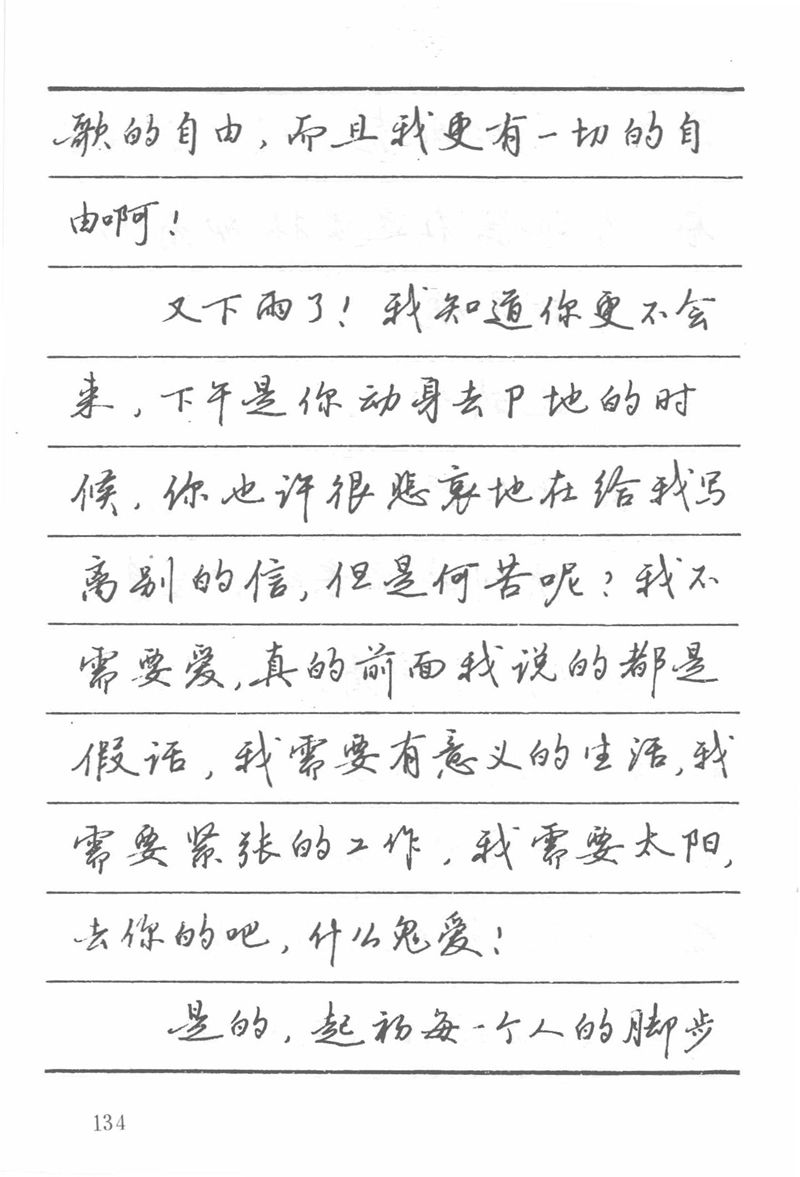 歌的自由，而且我更有一切的自
由啊！
又下雨了！我知道你更不会
来，下午是你动身去P地的时
候，你也许很悲哀地在给我写
离别的信，但是何苦呢？我不
需要爱，真的前面我说的都是
假话，我需要有意义的生活，我
需要紧张的工作，我需要太阳，
去你的吧，什么鬼爱！
是的，起初每一个人的脚步
134